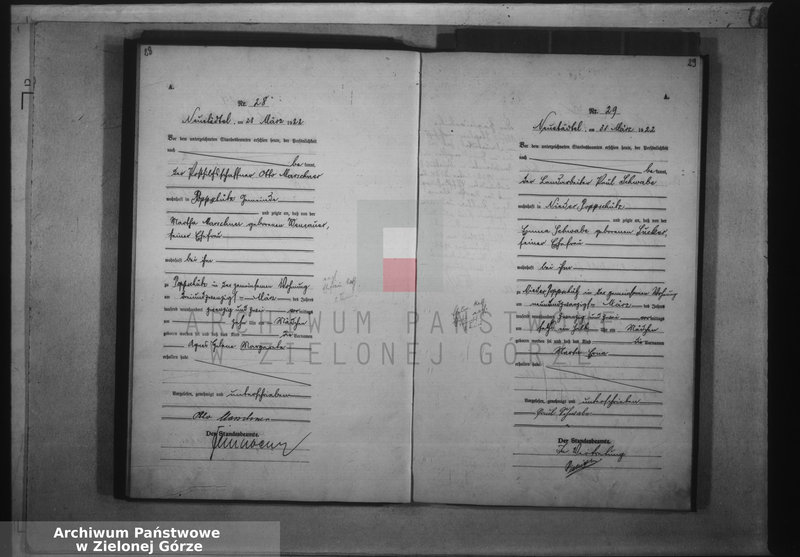 28
A.
Nr. 28
Neustädtel, am 21 März 1922
Vor dem unterzeichneten Standesbeamten erschien heute, der Persönlichkeit
nach
be kannt,
der Posthilfsschaffner Otto Marschner
wohnhaft in Poppschütz Gemeinde
und zeigte an, daß von der
Martha Marschner geborenen
seiner Ehefrau
wohnhaft bei ihm
zu Poppschütz in der gemeinsamen Wohnung
am März des Jahres
tausend neunhundert zwanzig und zwei vormittags
um Uhr ein Mädchen
geboren worden ist und daß das Kind die Vornamen
Agnes Helene Margarete
erhalten habe.
Vorgelesen, genehmigt und unterschrieben
Otto Marschner
Der Standesbeamte.
29
A.
Nr. 29
Neustädtel, am 21 März 1922
Vor dem unterzeichneten Standesbeamten erschien heute, der Persönlichkeit
nach
be kannt,
der Landarbeiter Paul Schwabe
wohnhaft in Nieder Poppschütz
und zeigte an, daß von der
Emma Schwabe geborenen
seiner Ehefrau
wohnhaft bei ihm
zu Nieder Poppschütz in der gemeinsamen Wohnung
am März des Jahres
tausend neunhundert zwanzig und zwei vormittags
um Uhr ein Mädchen
geboren worden ist und daß das Kind die Vornamen
Martha Erna
erhalten habe.
Vorgelesen, genehmigt und unterschrieben
Paul Schwabe
Der Standesbeamte.
In Vertretung
ARCHIWUM PAŃSTWOWE
W ZIELONEJ GÓRZE
Archiwum Państwowe
w Zielonej Górze